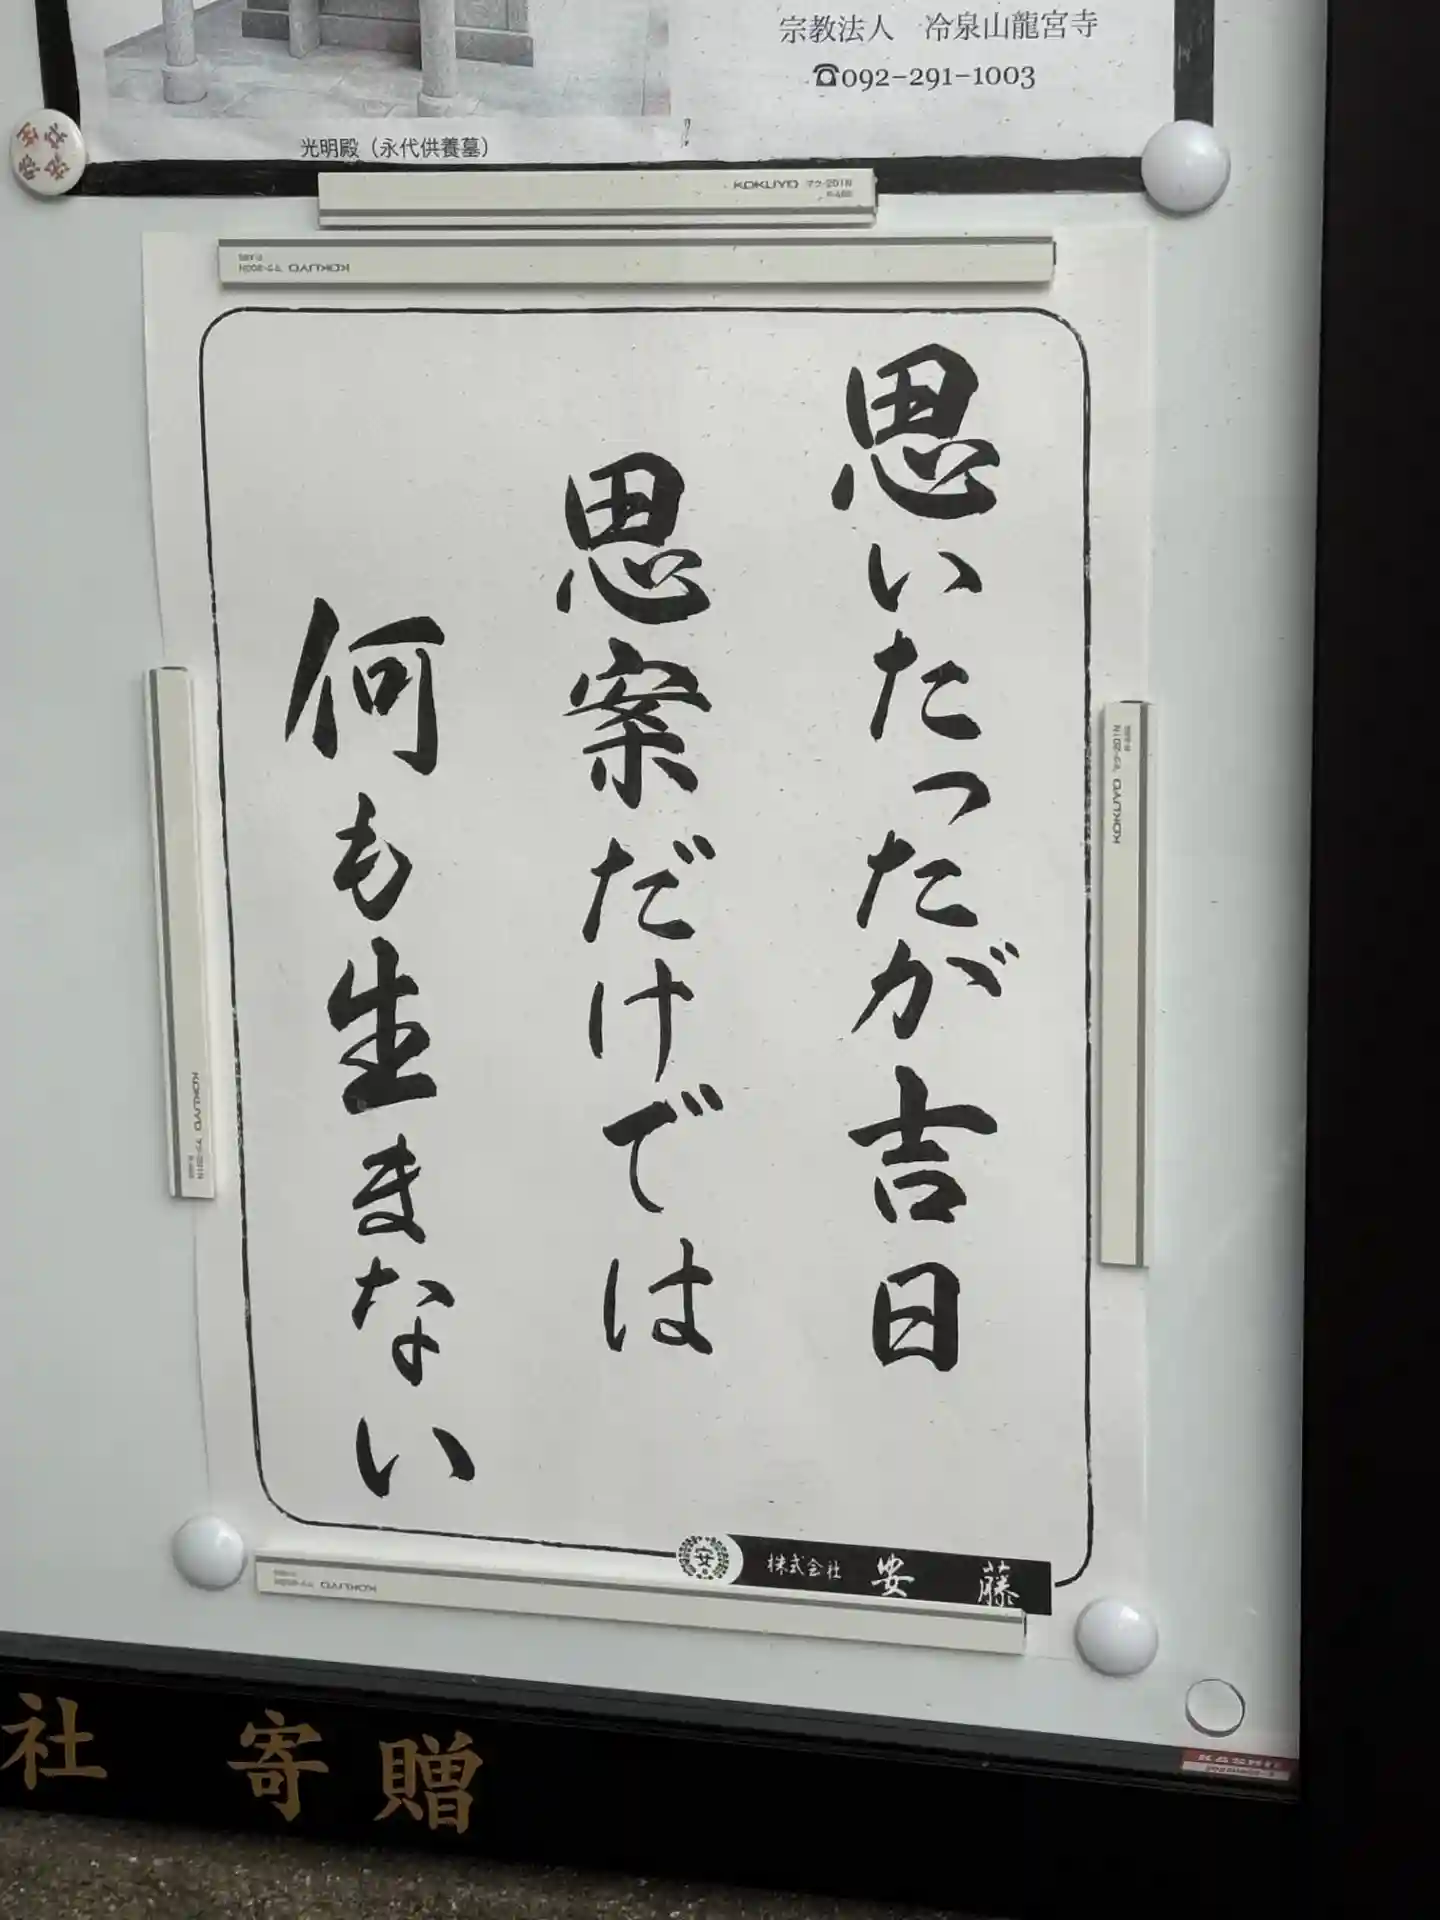 宗教法人　冷泉山龍宮寺
☎092-291-1003
光明殿（永代供養墓）
KOKUYO マク-201N
KOKUYO
思いたったが吉日
思案だけでは
何も生まない
KOKUYO
KOKUYO
KOKUYO
安
株式会社 安藤
社 寄贈